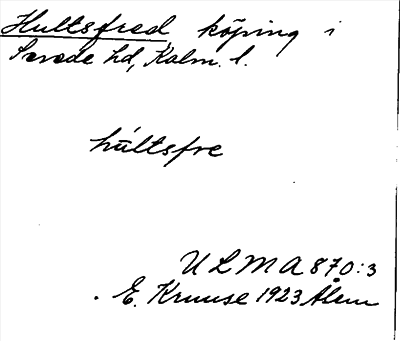 Hultsfred, köping i
Sevede hd, Kalm. l.
húltsfre
ULMA 870:3
E. Kruuse 1923 Ålem